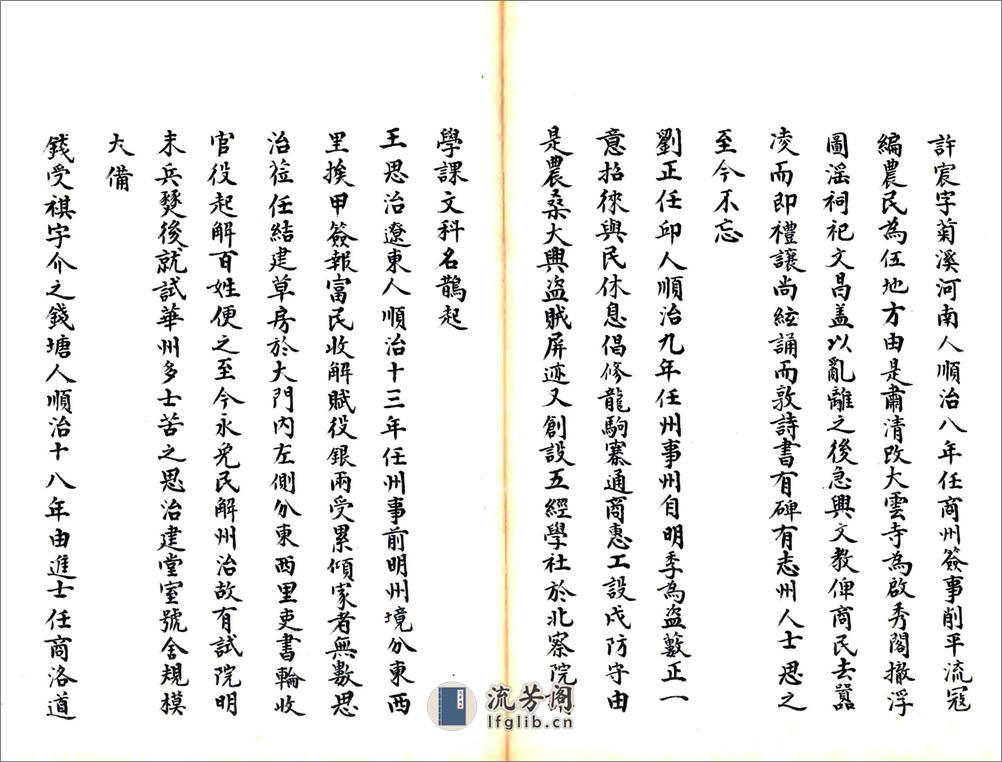 許宸字菊溪河南人順治八年任商州簽事削平流冦
編農民為伍地方由是肅清改大雲寺為啟秀閣撤浮
圖滛祠祀文昌盖以亂離之後急興文教俾商民去囂
凌而即禮讓尚絃誦而敦詩書有碑有志州人士思之
至今不忘
劉正任邱人順治九年任州事州自明季為盗藪正一
意招徠與民休息倡修龍駒寨通商惠工設戍防守由
是農桑大興盗賊屏迹又創設五經學社於北察院
學課文科名鵲起
王思治遼東人順治十三年任州事前明州境分東西
里挨甲簽報富民收解賦役銀兩受累傾家者無數思
治莅任結建草房於大門内左側分東西里吏書輪收
官役起解百姓便之至今永免民解州治故有試院明
末兵燹後就試華州多士苦之思治建堂室號舍規模
大備
錢受祺字介之錢塘人順治十八年由進士任商洛道
流芳阁
lfglib.cn